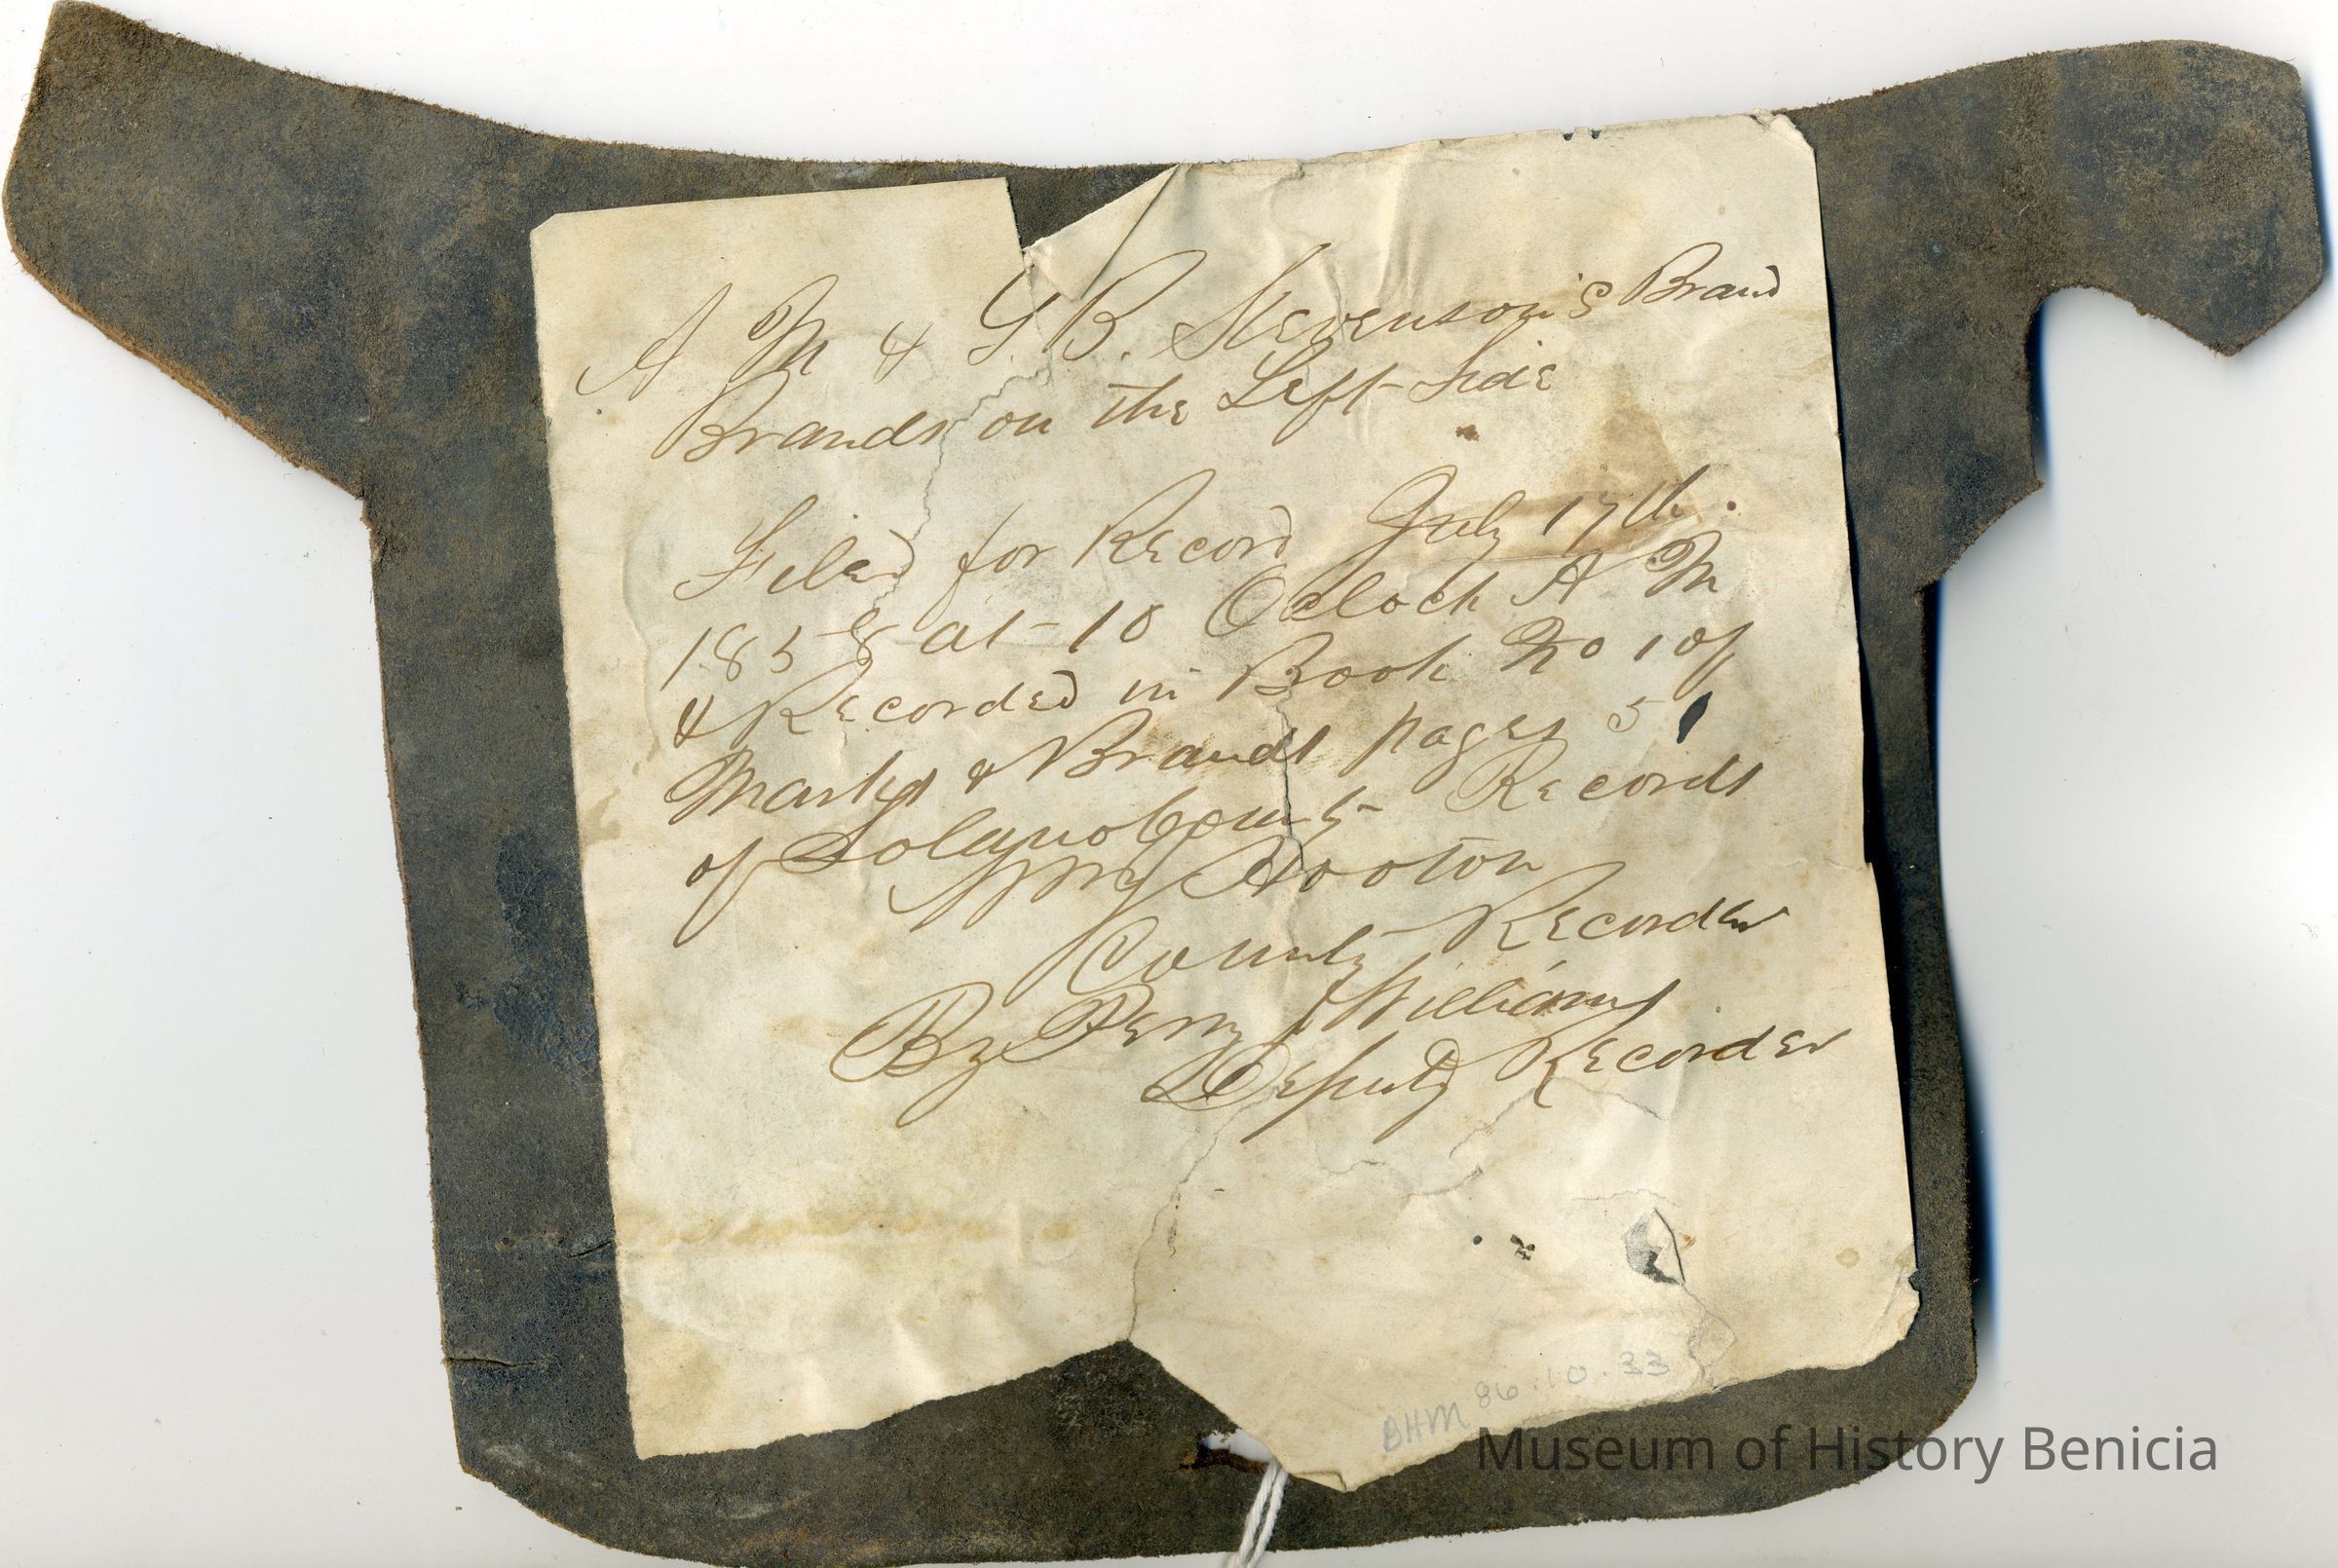 A M & G. B. Stevenson's Brand
Brands on the Left Side
Filed for Record July 17th.
1858 at 10 Oclock A M
& Recorded in Book No 1 of
Marks & Brands pages 51
of Solano County Records
Hooton
County Recorder
By Perry Williams
Deputy Recorder
BHM 86.10.33
Museum of History Benicia